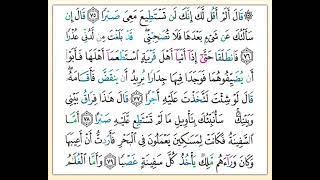 ۞ قَالَ أَلَمْ أَقُل لَّكَ إِنَّكَ لَن تَسْتَطِيعَ مَعِىَ صَبْرًا ٧٥ قَالَ إِن
سَأَلْتُكَ عَن شَىْءٍۭ بَعْدَهَا فَلَا تُصَٰحِبْنِى قَدْ بَلَغْتَ مِن لَّدُنِّى عُذْرًا
٧٦ فَٱنطَلَقَا حَتَّىٰٓ إِذَآ أَتَيَآ أَهْلَ قَرْيَةٍ ٱسْتَطْعَمَآ أَهْلَهَا فَأَبَوْا۟
أَن يُضَيِّفُوهُمَا فَوَجَدَا فِيهَا جِدَارًا يُرِيدُ أَن يَنقَضَّ فَأَقَامَهُۥ
قَالَ لَوْ شِئْتَ لَتَّخَذْتَ عَلَيْهِ أَجْرًا ٧٧ قَالَ هَٰذَا فِرَاقُ بَيْنِى
وَبَيْنِكَ سَأُنَبِّئُكَ بِتَأْوِيلِ مَا لَمْ تَسْتَطِع عَّلَيْهِ صَبْرًا ٧٨ أَمَّا
ٱلسَّفِينَةُ فَكَانَتْ لِمَسَٰكِينَ يَعْمَلُونَ فِى ٱلْبَحْرِ فَأَرَدتُّ أَنْ أَعِيبَهَا
وَكَانَ وَرَآءَهُم مَّلِكٌ يَأْخُذُ كُلَّ سَفِينَةٍ غَصْبًا ٧٩ وَأَمَّا ٱلْغُلَٰمُ